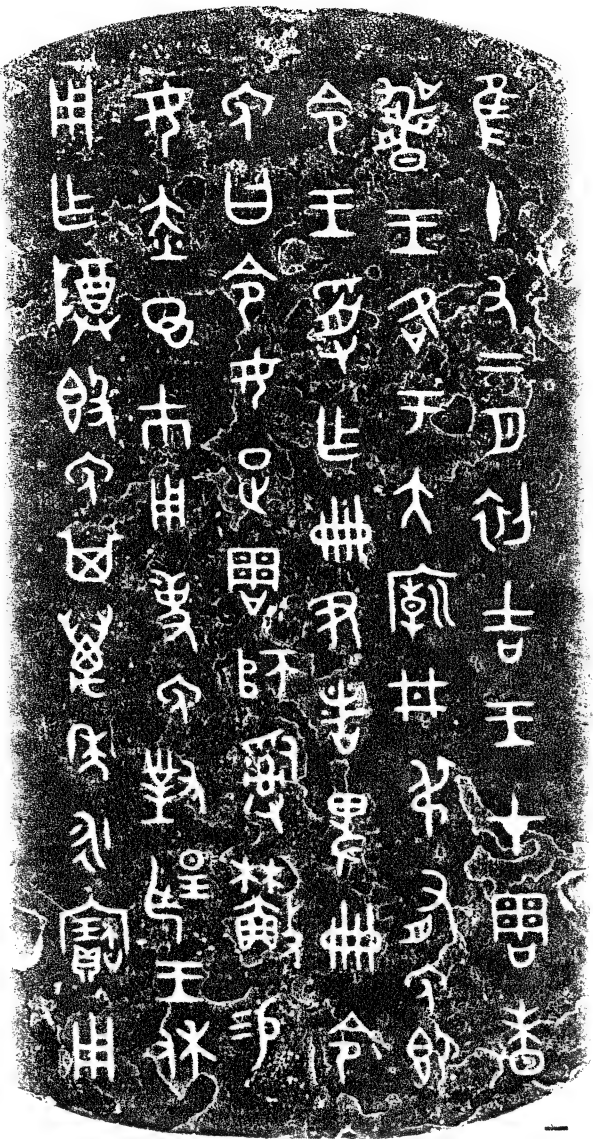 隹十又二月初吉王才周昧
爽王各于大廟井弔又免即
令王受乍冊尹者卑冊令
免曰令女疋周師𤔲易
女赤巿用事免對揚王休
用乍尊簋免其萬年永寶用